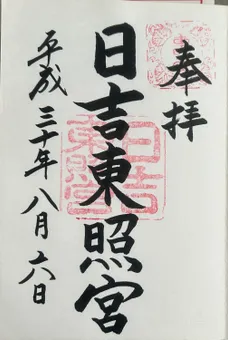 奉拝
日吉東照宮
平成三十年八月六日